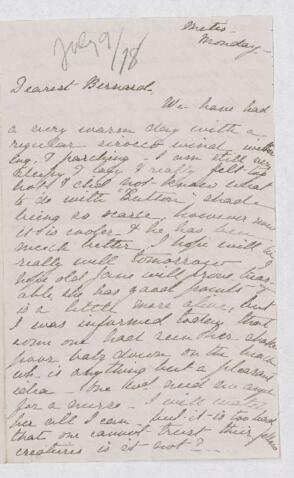 July 9/78
Metis -
Monday -
Dearest Bernard.
We have had
a very warm day with a
regular siroco wind, wither-
ing & parching. I am still very
sleepy & lazy I really felt too
hot & did not know what
to do with Button, shade
being so scarce, however now
it is cooler & he has been
much better, I hope will be
really well tomorrow
hope old Jane will prove bear-
able, she has good points &
is a little more alive, but
I was informed today that
some one had seen her shake
poor baby down on the beach
wh. is anything but a pleasant
idea - One does need an angel
for a nurse. I will watch
her all I can - but it is too hard
that one cannot trust their fellow
creatures is it not? -